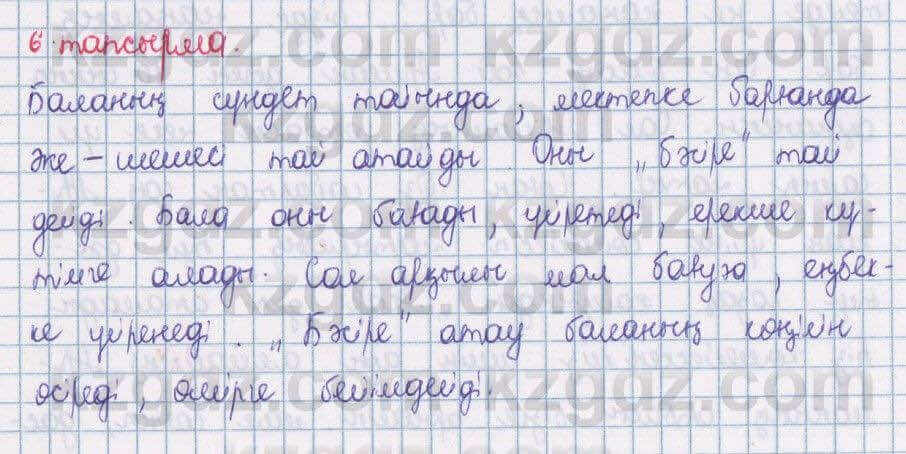 6 тапсырма.
Баланың сүндет тойында, мектепке барғанда
әке-шешесі тай атайды Оны „Бәсіре" тай
дейді. Бала оны бағады, үйретеді, ерекше кү-
тімге алады. Сол арқылы мал бағуға, еңбек-
ке үйренеді. „Бәсіре" атау баланың көңілін
өсіреді, өмірге бейімдейді.